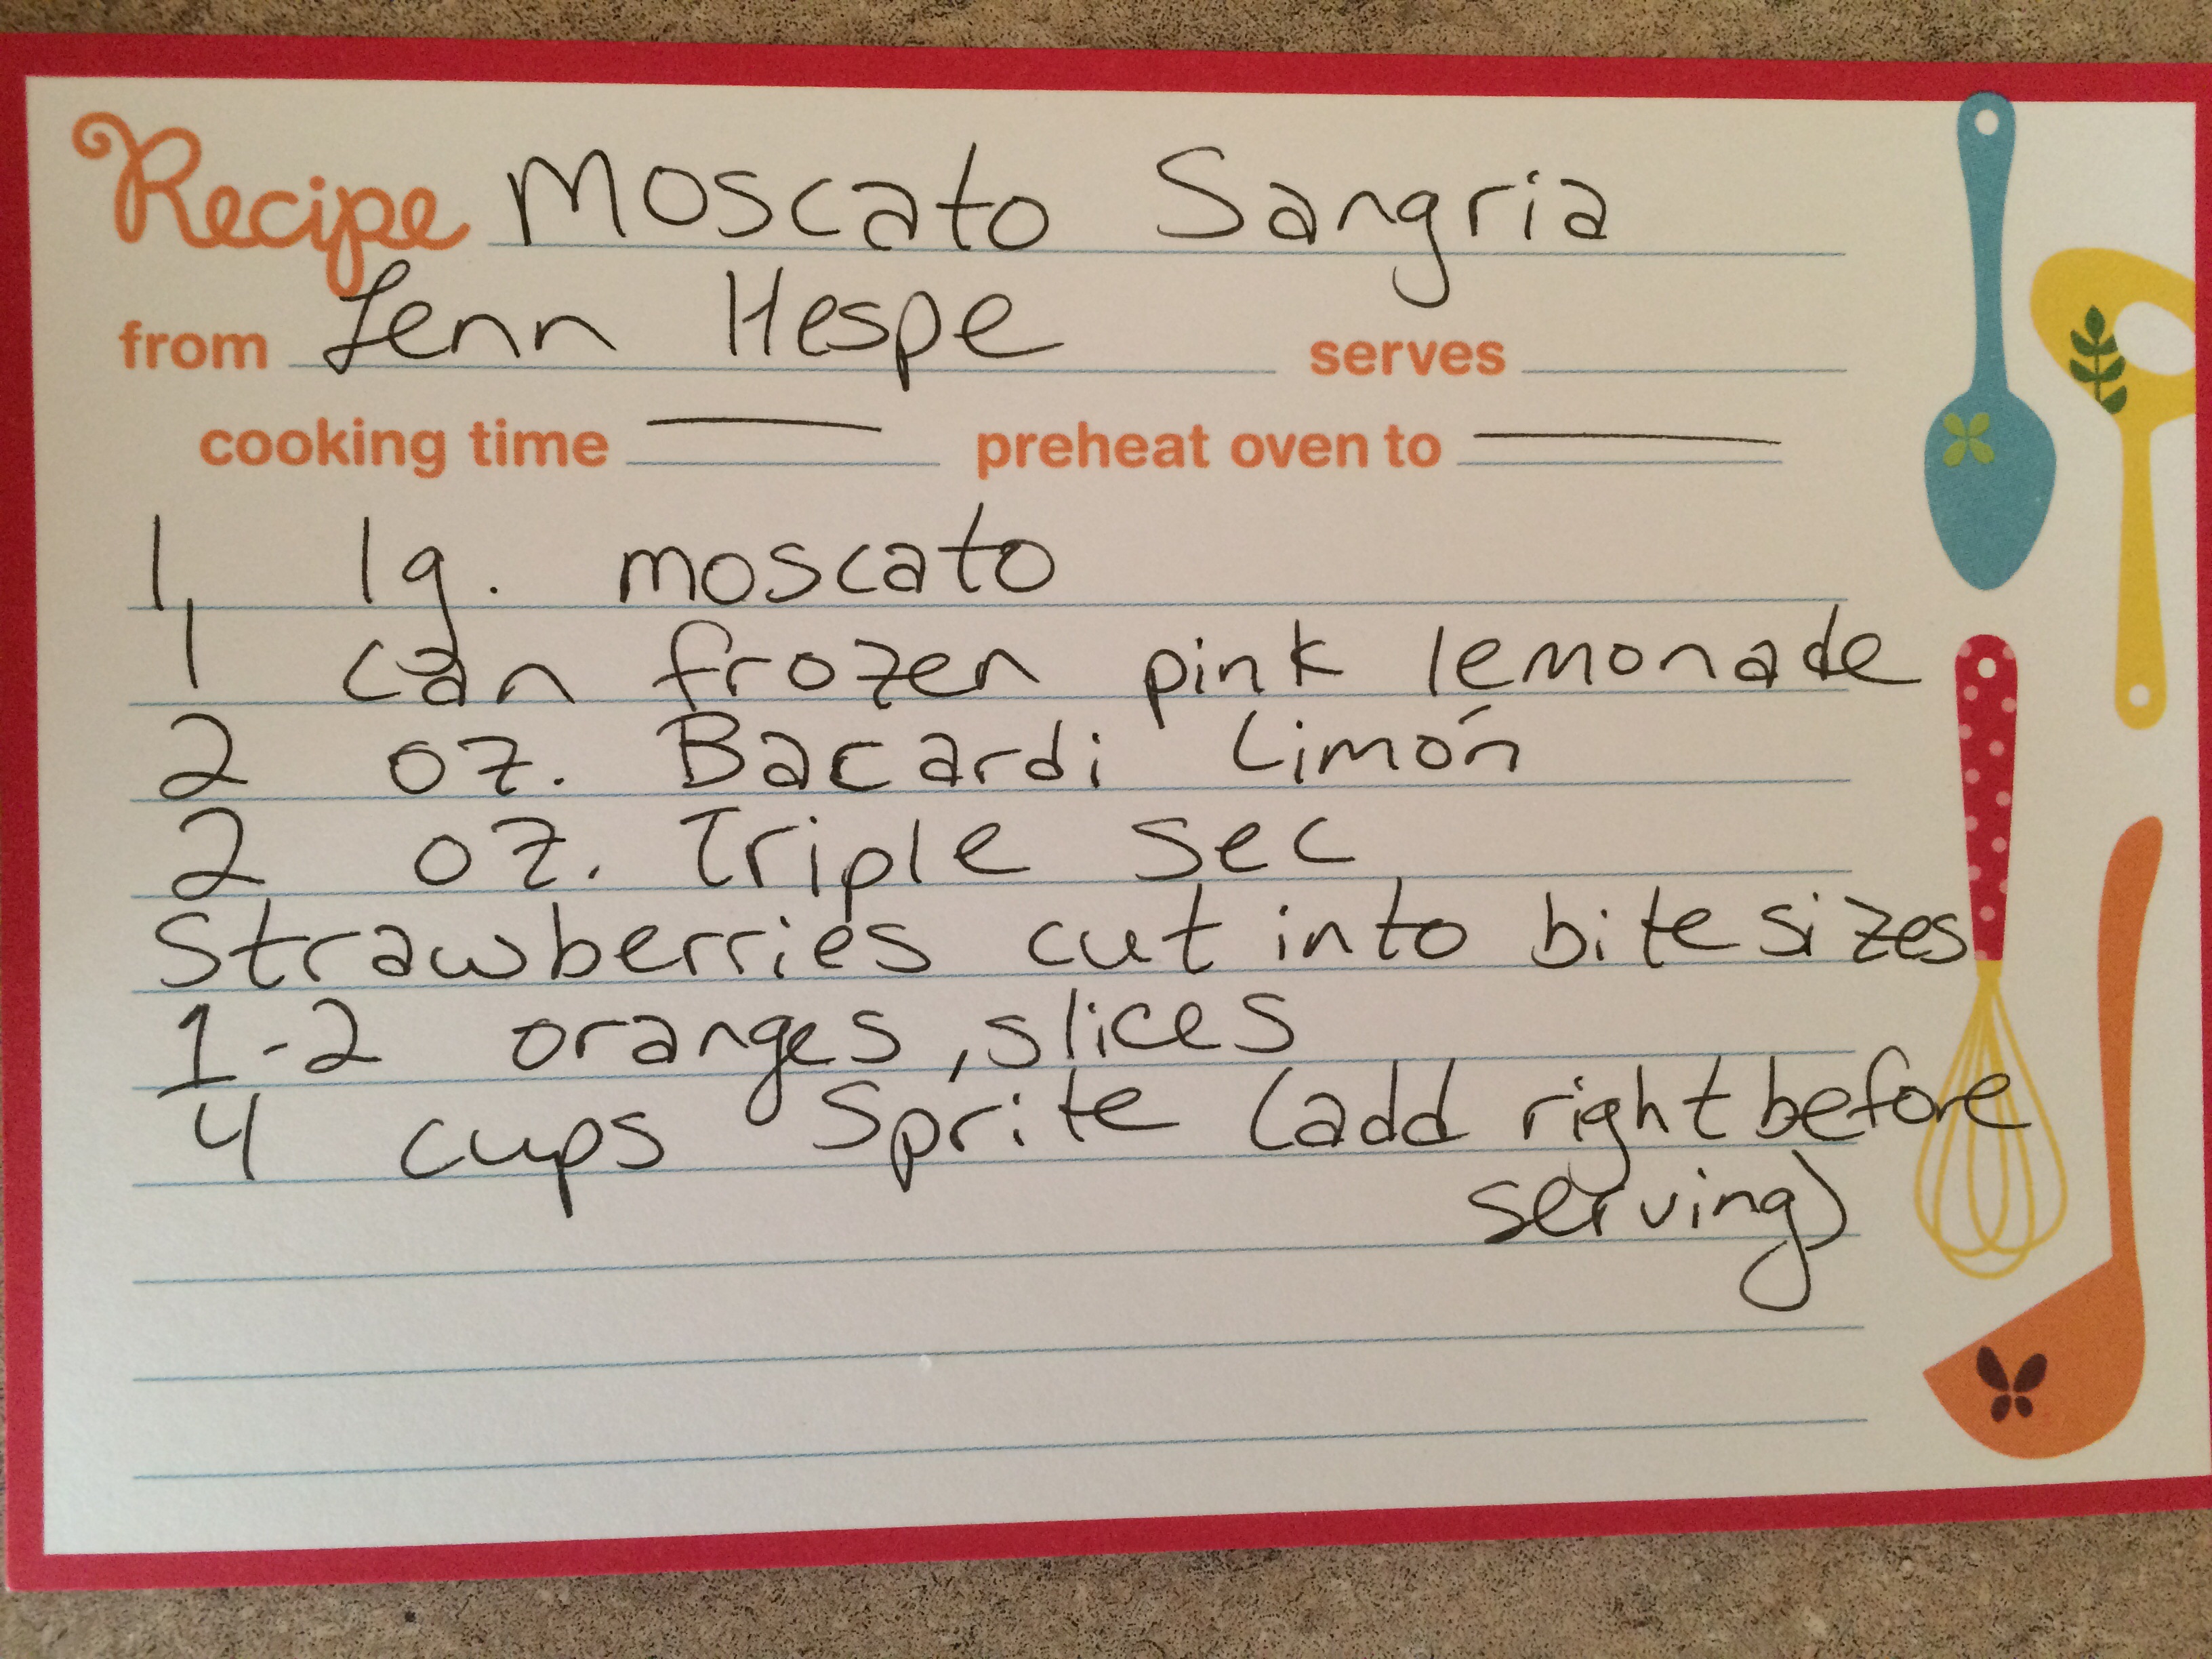 Recipe Moscato Sangria
from Jenn Hespe serves
cooking time — preheat oven to —
1, lg. moscato
1 can frozen pink lemonade
2 oz. Bacardi Limón
2 oz. Triple sec
Strawberries cut into bite sizes
1-2 oranges, slices
4 cups Sprite (add right before
serving)